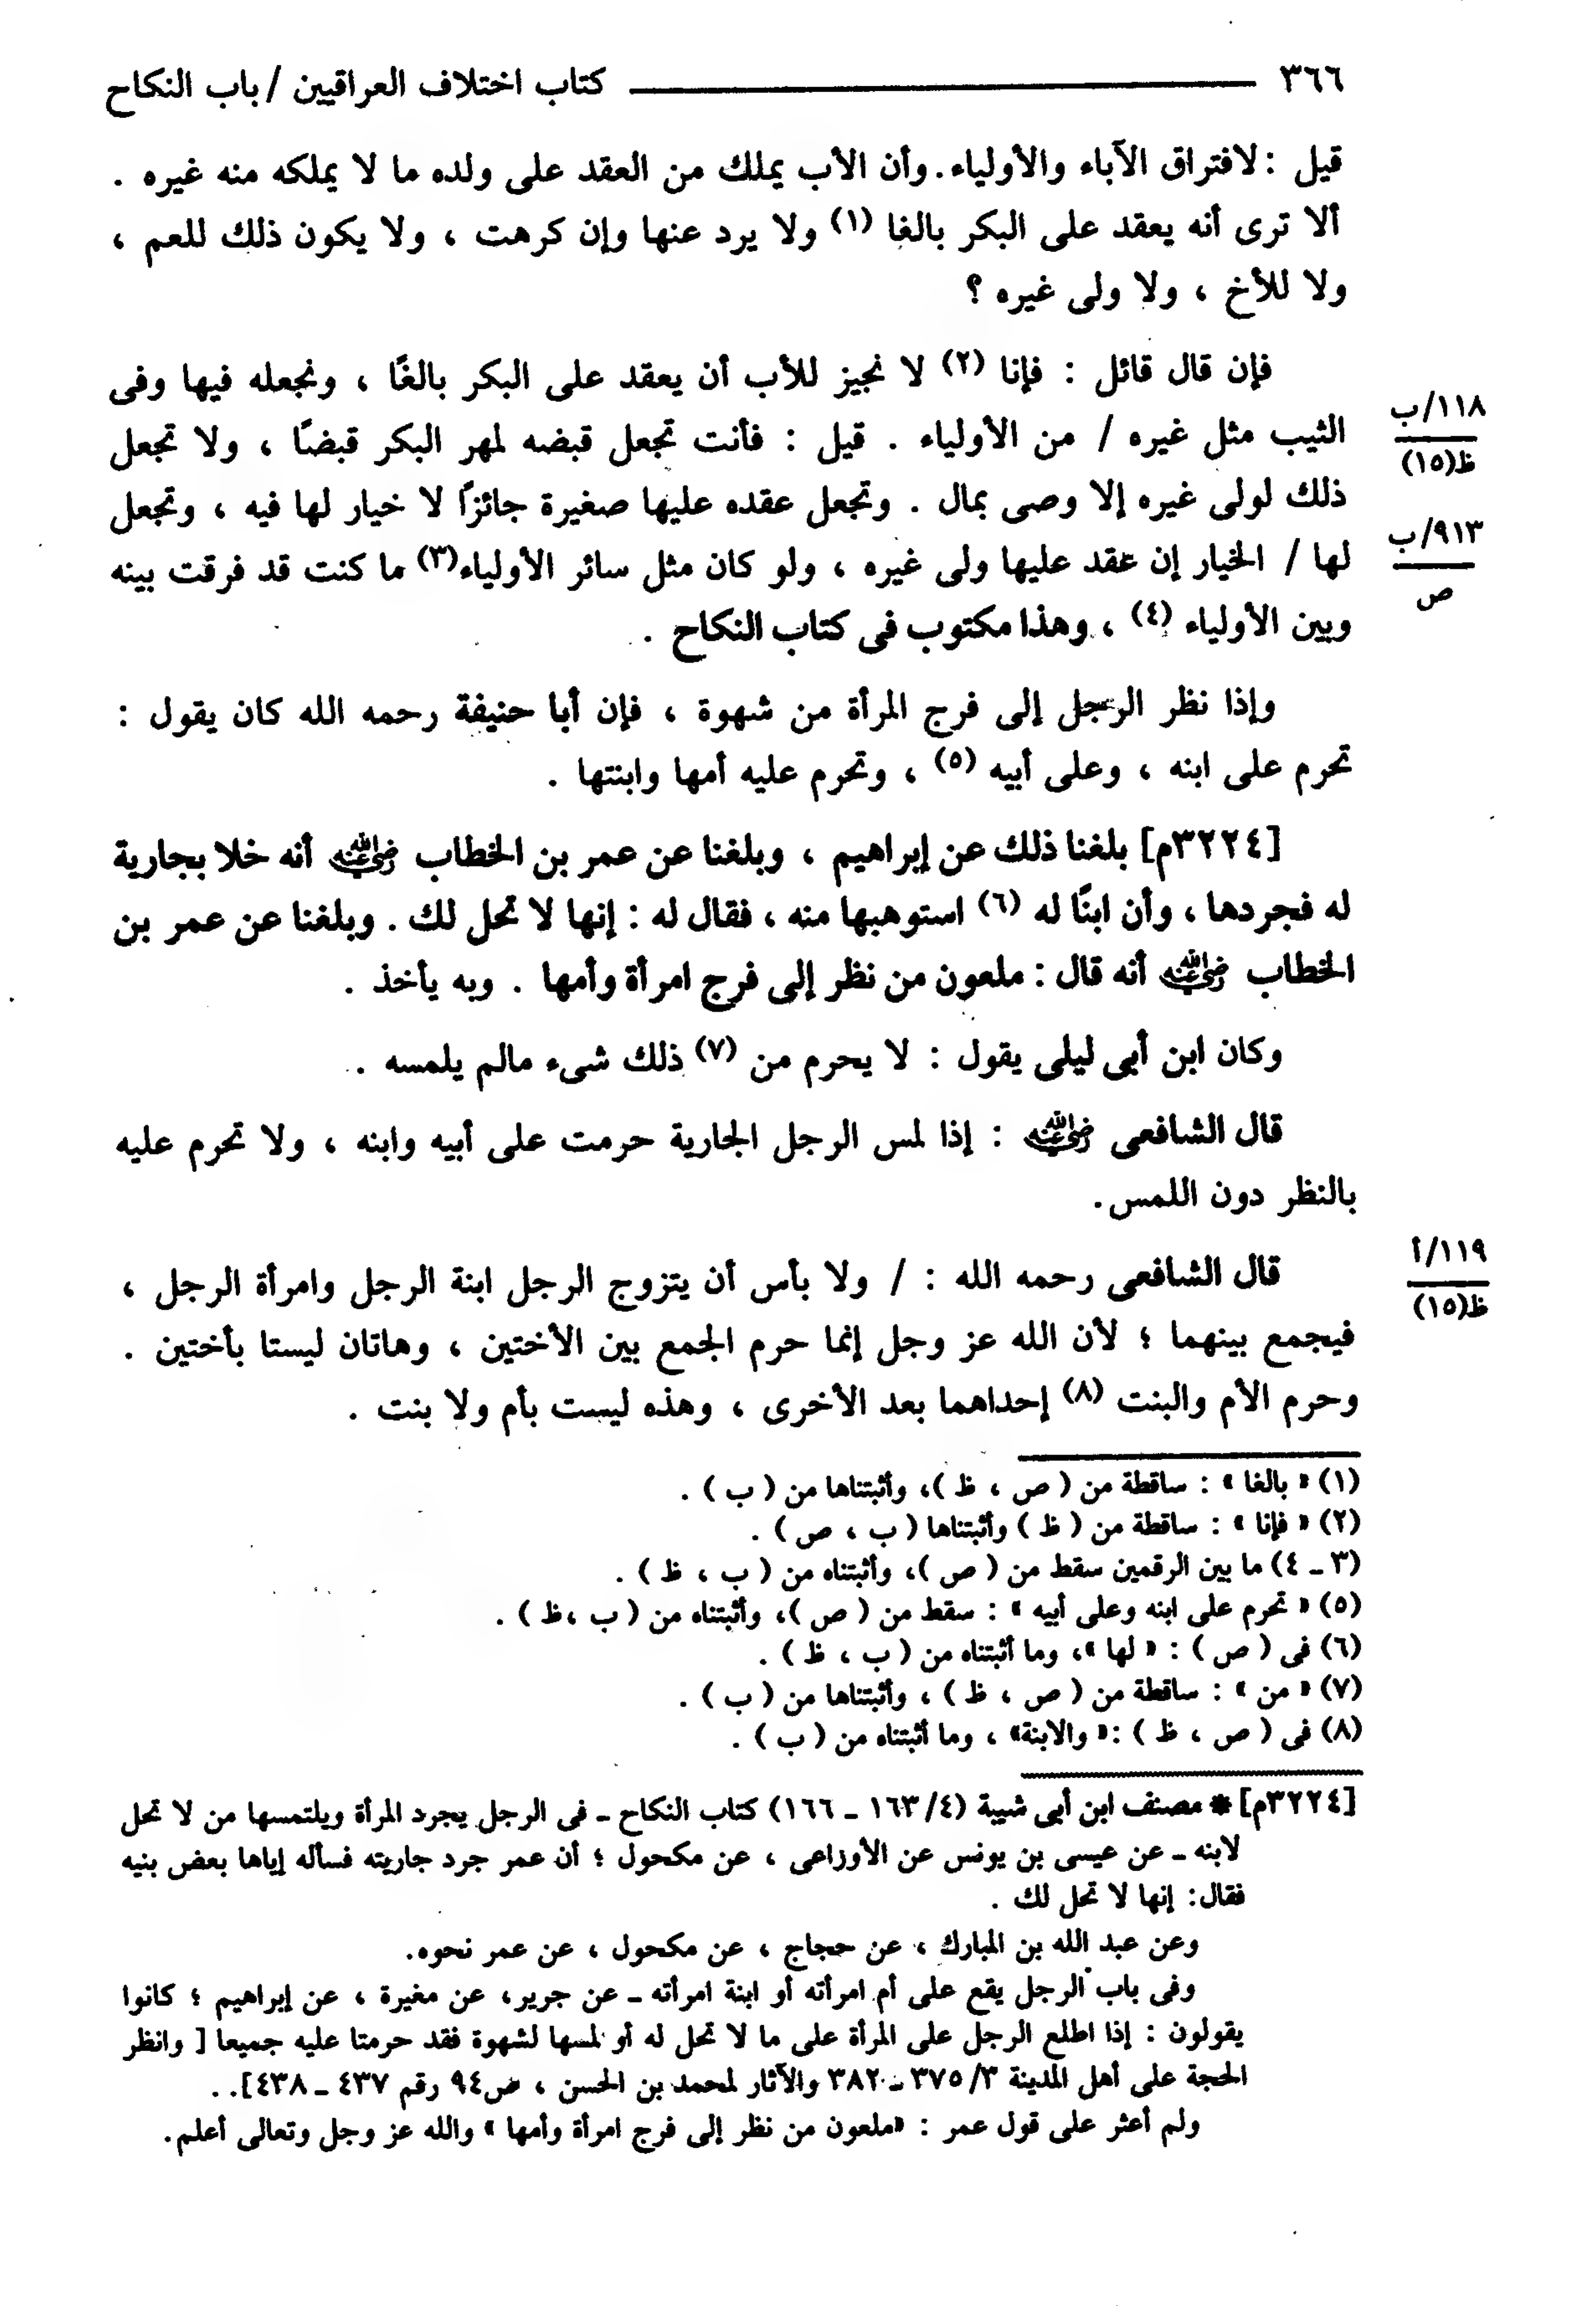 ٣٦٦ ــــــــ كتاب اختلاف العراقيين / باب النكاح
قيل : لافتراق الآباء والأولياء. وأن الأب يملك من العقد على ولده ما لا يملكه منه غيره .
ألا ترى أنه يعقد على البكر بالغا (١) ولا يرد عنها وإن كرهت ، ولا يكون ذلك للعم ،
ولا للأخ ، ولا ولى غيره ؟
فإن قال قائل : فإنا (٢) لا نجيز للأب أن يعقد على البكر بالغًا ، ونجعله فيها وفى
الثيب مثل غيره / من الأولياء . قيل : فأنت تجعل قبضه لمهر البكر قبضًا ، ولا تجعل
١١٨/ب
ظ(١٥)
ذلك لولى غيره إلا وصى بمال . وتجعل عقده عليها صغيرة جائزًا لا خيار لها فيه ، وتجعل
لها / الخيار إن عقد عليها ولى غيره ، ولو كان مثل سائر الأولياء(٣) ما كنت قد فرقت بينه
٩١٣/ب
ص
وبين الأولياء (٤) ، وهذا مكتوب فى كتاب النكاح .
وإذا نظر الرجل إلى فرج المرأة من شهوة ، فإن أبا حنيفة رحمه الله كان يقول :
تحرم على ابنه ، وعلى أبيه (٥) ، وتحرم عليه أمها وابنتها .
[٣٢٢٤م] بلغنا ذلك عن إبراهيم ، وبلغنا عن عمر بن الخطاب رضي الله عنه أنه خلا بجارية
له فجردها ، وأن ابنًا له (٦) استوهبها منه ، فقال له : إنها لا تحل لك . وبلغنا عن عمر بن
الخطاب رضي الله عنه أنه قال : ملعون من نظر إلى فرج امرأة وأمها . وبه يأخذ .
وكان ابن أبى ليلى يقول : لا يحرم من (٧) ذلك شىء مالم يلمسه .
قال الشافعى رضي الله عنه : إذا لمس الرجل الجارية حرمت على أبيه وابنه ، ولا تحرم عليه
بالنظر دون اللمس.
قال الشافعى رحمه الله : / ولا بأس أن يتزوج الرجل ابنة الرجل وامرأة الرجل ،
١١٩/أ
ظ(١٥)
فيجمع بينهما ؛ لأن الله عز وجل إنما حرم الجمع بين الأختين ، وهاتان ليستا بأختين .
وحرم الأم والبنت (٨) إحداهما بعد الأخرى ، وهذه ليست بأم ولا بنت .
(١) « بالغا » : ساقطة من ( ص ، ظ )، وأثبتناها من ( ب ) .
(٢) « فإنا » : ساقطة من ( ظ ) وأثبتناها ( ب ، ص ) .
(٣ ـ ٤) ما بين الرقمين سقط من ( ص )، وأثبتناه من ( ب ، ظ ) .
(٥) « تحرم على ابنه وعلى أبيه » : سقط من ( ص )، وأثبتناه من ( ب ،ظ ) .
(٦) فى ( ص ) : « لها »، وما أثبتناه من ( ب ، ظ ) .
(٧) « من » : ساقطة من ( ص ، ظ ) ، وأثبتناها من ( ب ) .
(٨) فى ( ص ، ظ ) :« والابنة» ، وما أثبتناه من ( ب ) .
[٣٢٢٤م] * مصنف ابن أبى شيبة (٤/ ١٦٣ ـ ١٦٦) كتاب النكاح ـ فى الرجل يجرد المرأة ويلتمسها من لا تحل
لابنه ـ عن عيسى بن يونس عن الأوزاعى ، عن مكحول ؛ أن عمر جرد جاريته فسأله إياها بعض بنيه
فقال: إنها لا تحل لك .
وعن عبد الله بن المبارك ، عن حجاج ، عن مكحول ، عن عمر نحوه.
وفى باب الرجل يقع على أم امرأته أو ابنة امرأته ـ عن جرير، عن مغيرة ، عن إبراهيم ؛ كانوا
يقولون : إذا اطلع الرجل على المرأة على ما لا تحل له أو لمسها لشهوة فقد حرمتا عليه جميعا [ وانظر
الحجة على أهل المدينة ٣/ ٣٧٥ ـ ٣٨٢ والآثار لمحمد بن الحسن ، ص٩٤ رقم ٤٣٧ ـ ٤٣٨]. .
ولم أعثر على قول عمر : «ملعون من نظر إلى فرج امرأة وأمها » والله عز وجل وتعالى أعلم.